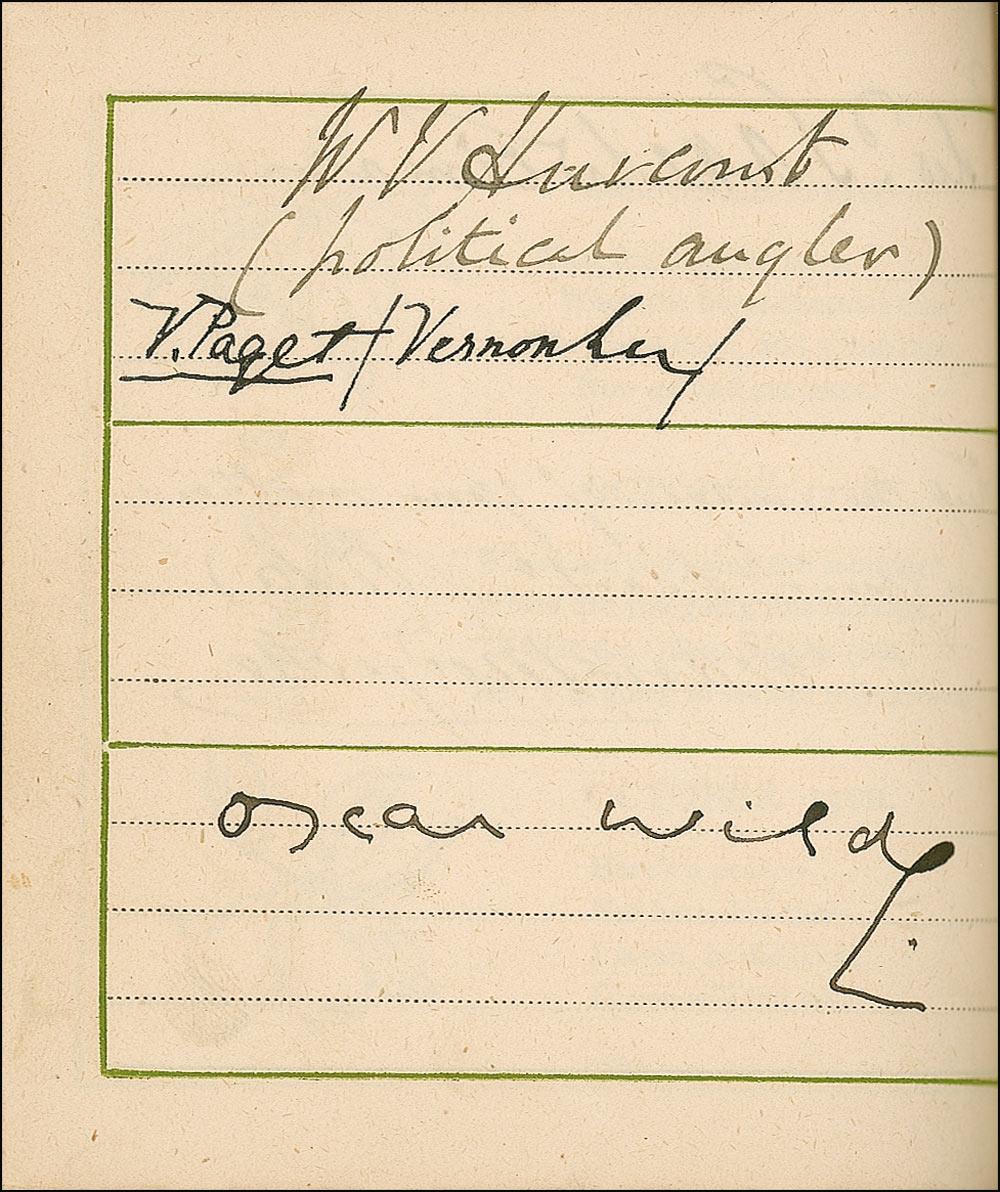 W V Harcourt
(political angler)
V. Paget (Vernon Lee)
Oscar Wilde